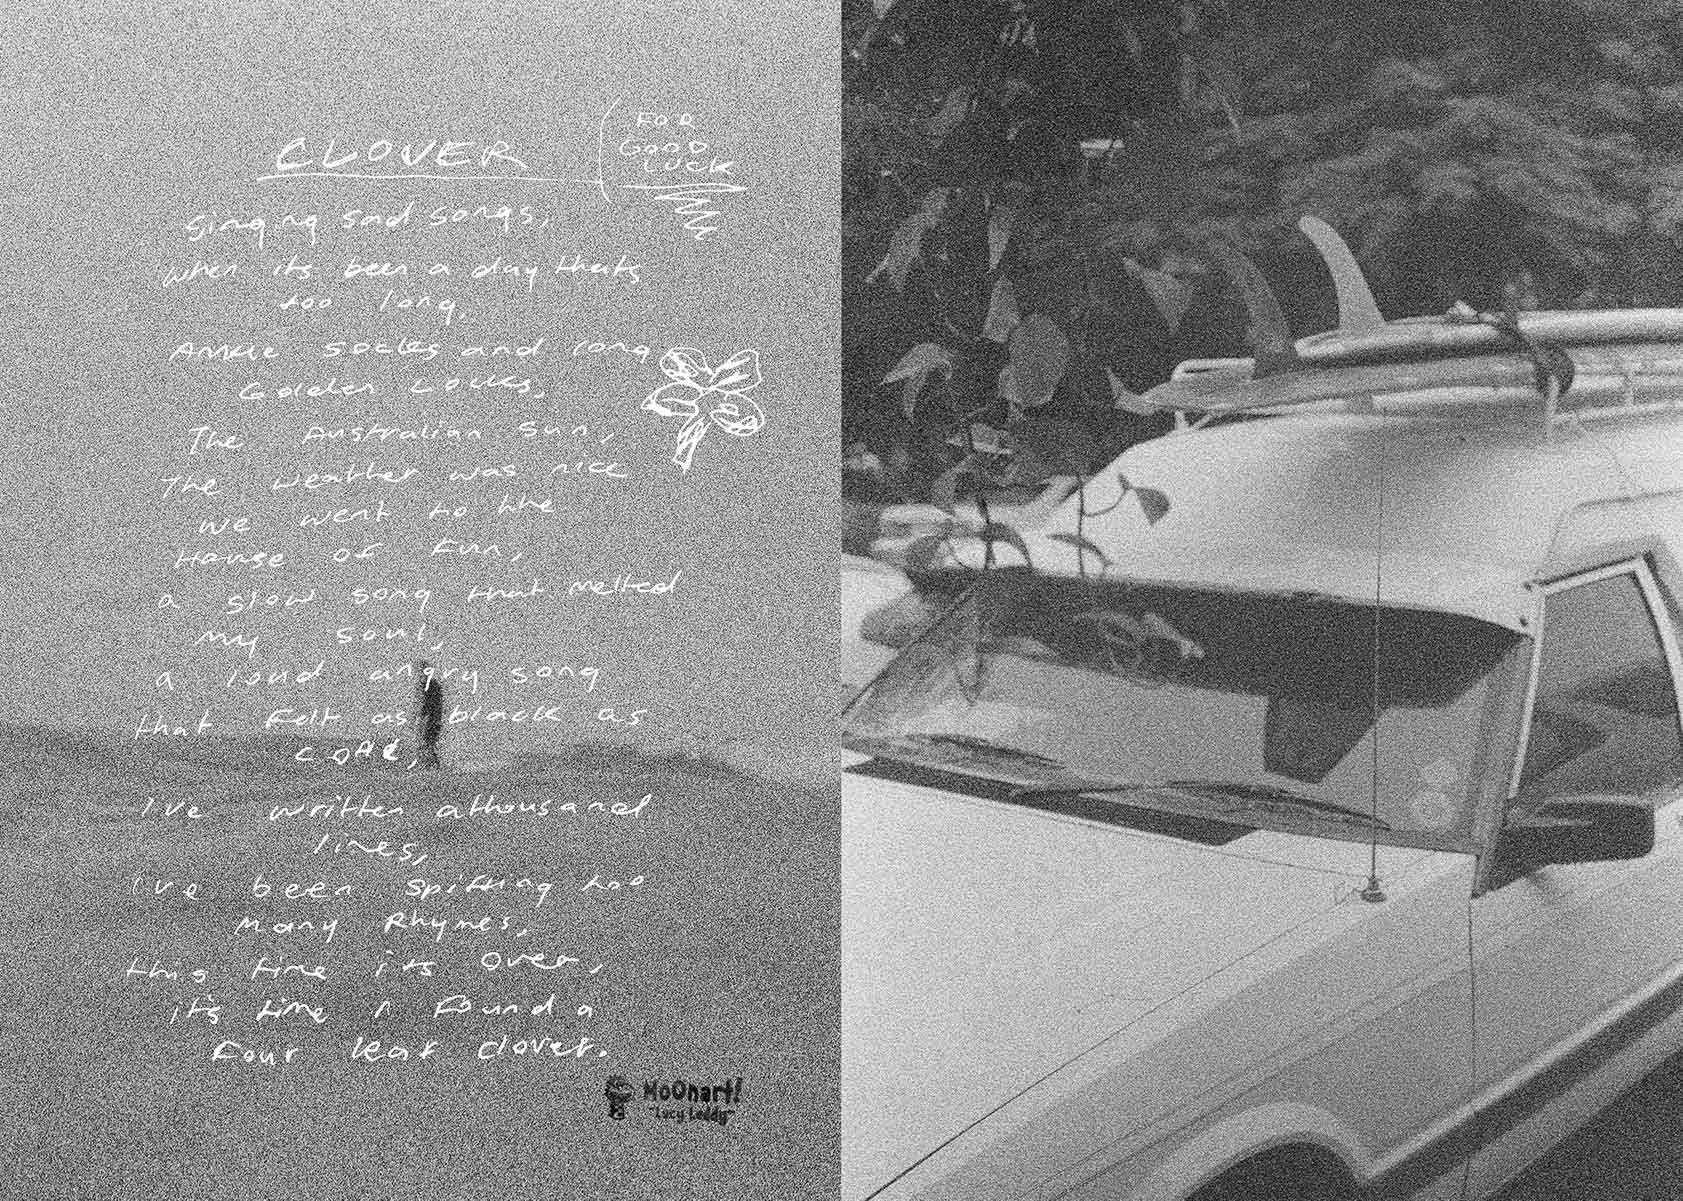 CLOVER
FOR
GOOD
LUCK
Singing sad songs,
when its been a day thats
too long,
Ankle socks and long
Golden Locks,
The Australian Sun,
The weather was nice
we went to the
House of Fun,
a slow song that melted
my soul,
a loud angry song
that Felt as black as
COAL,
I've written a thousand
lines,
I've been spitting too
Many Rhymes,
this time its over,
it's time I Found a
Four leaf clover.
MoOnart!
"Lucy Leddy"